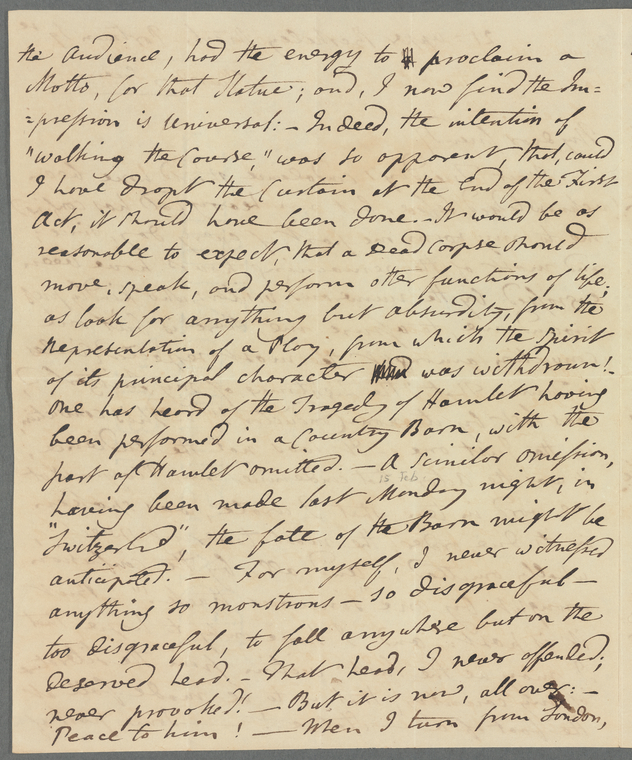 the Audience, had the energy to proclaim a
Motto, for that Statue; and, I now find the Im=
=pression is Universal: - Indeed, the intention of
"walking the Course," was so apparent, that, could
I have dropt the Curtain at the End of the First
Act, it should have been done. - It would be as
reasonable to expect, that a dead Corpse should
move, speak, and perform other functions of life;
as look for anything but absurdity, from the
Representation of a Play, from which the Spirit
of its principal character was withdrawn! -
One has heard of the Tragedy of Hamlet having
been performed in a Country Barn, with the
part of Hamlet omitted. - A similar omission,
15 Feb
having been made last Monday night, in
"Switzerld", the fate of the Barn might be
anticipated. - For myself, I never witnessed
anything so monstrous - so disgraceful -
too disgraceful, to fall anywhere but on the
deserved head. - That head, I never offended;
never provoked! - But it is now, all over: -
Peace to him! - When I turn from London,